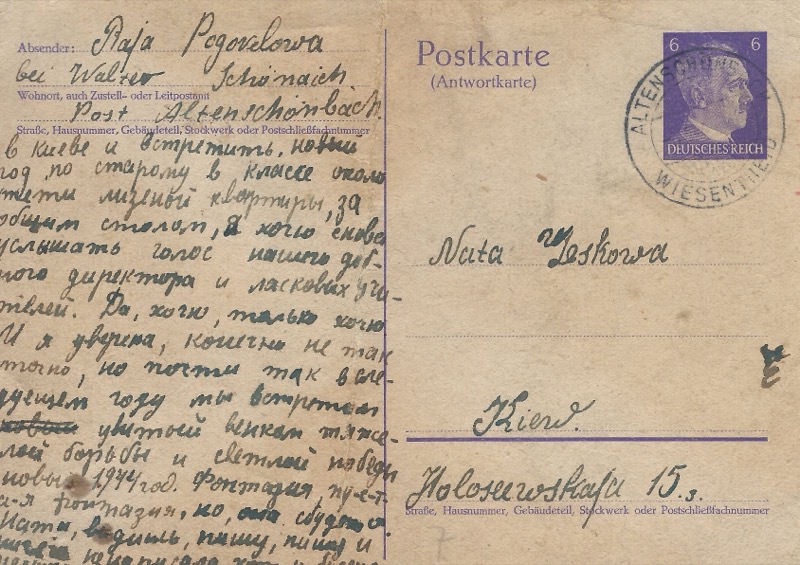 Absender: Raja Pogorelowa
bei Walter Schönaich
Wohnort, auch Zustell- oder Leitpostamt
Post Altenschönbach.
Straße, Hausnummer, Gebäudeteil, Stockwerk oder Postschließfachnummer
в киеве и встретить, новый
год по старому в классе около
лизеной квартиры, за
общим столом, Я хочу снова
услышать голос нашего доб-
ного директора и ласковых учи-
телей. Да, хочу, только хочу
И я уверена, конечно не так
точно, но почти так в сле-
дующем году мы встретим
увитый венком тяже-
лой борьбы и светлой победы
новый 1944 год. Фонтазия, пу-с-т-
а-я фонтазия, но, она сбудется.
Ната, видишь, пишу, пишу и
Postkarte
(Antwortkarte)
6 6
DEUTSCHES REICH
WIESENTHEID
Nata Leskowa
Kiew.
Holosewskaja 15.
Straße, Hausnummer, Gebäudeteil, Stockwerk oder Postschließfachnummer